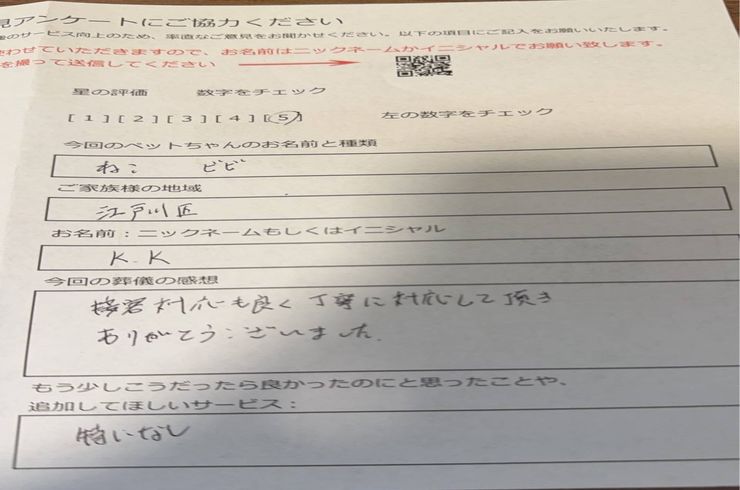 見アンケートにご協力ください
のサービス向上のため、率直なご意見をお聞かせください。以下の項目にご記入をお願いいたします。
わせていただきますので、お名前はニックネームかイニシャルでお願い致します。
を撮って送信してください
星の評価 数字をチェック
[1] [2] [3] [4] [5] 左の数字をチェック
今回のペットちゃんのお名前と種類
ねこ ビビ
ご家族様の地域
江戸川区
お名前:ニックネームもしくはイニシャル
K.K
今回の葬儀の感想
対応も良く丁寧に対応して頂き
ありがとうございました。
もう少しこうだったら良かったのにと思ったことや、
追加してほしいサービス:
特になし